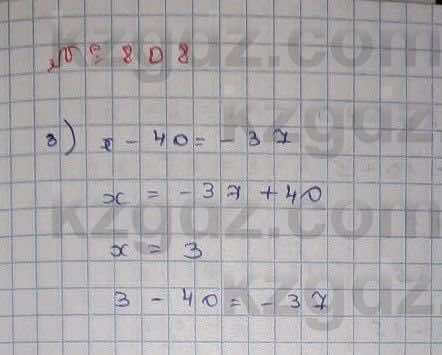 № 808
3) x - 40 = - 37
x = - 37 + 40
x = 3
3 - 40 = - 37
kzgdz.com
kzgdz.com
kzgdz.com
kzgdz.com